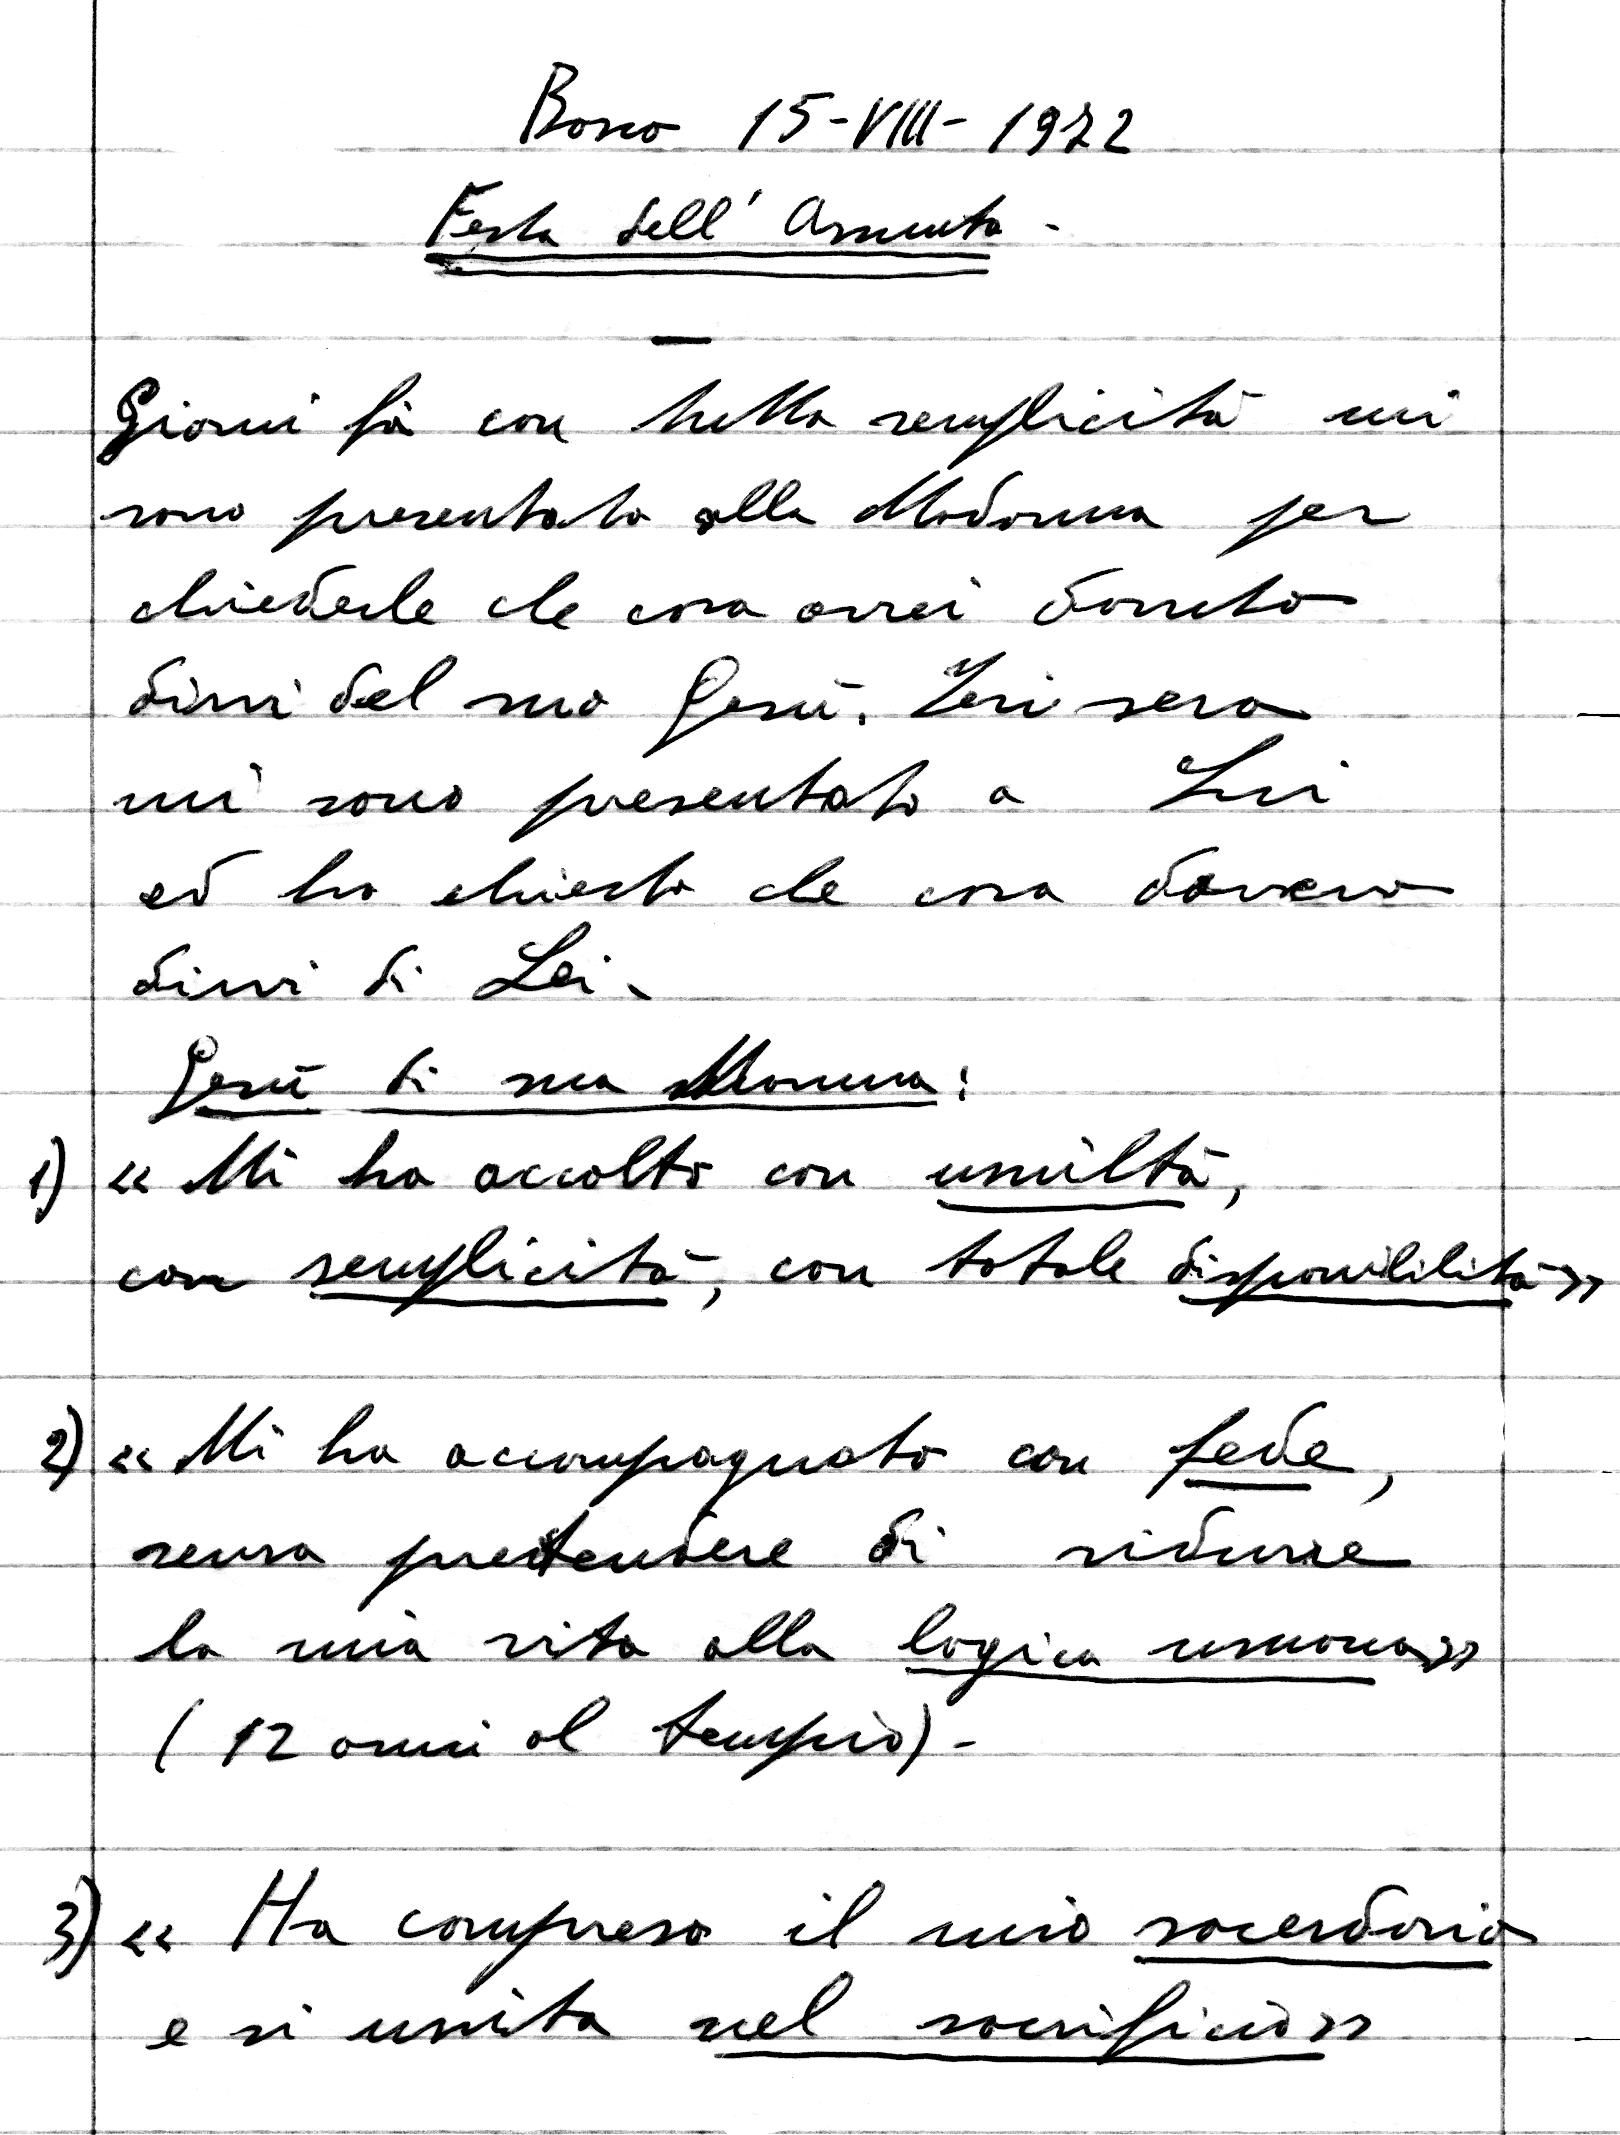 Bosco 15-VIII-1972
Festa dell'Assunta -
Giorni fà con tutta semplicità mi
sono presentato alla Madonna per
chiederle che cosa avrei dovuto
dirvi del suo Gesù. Ieri sera
mi sono presentato a Lui
ed ho chiesto che cosa dovevo
dirvi di Lei.
Gesù di sua Mamma:
1) « Mi ha accolto con umiltà,
con semplicità, con totale disponibilità »
2) « Mi ha accompagnato con fede,
senza pretendere di ridurre
la mia vita alla logica umana »
( 12 anni al tempio) -
3) « Ha compreso il mio sacerdozio
e si unita nel sacrificio »